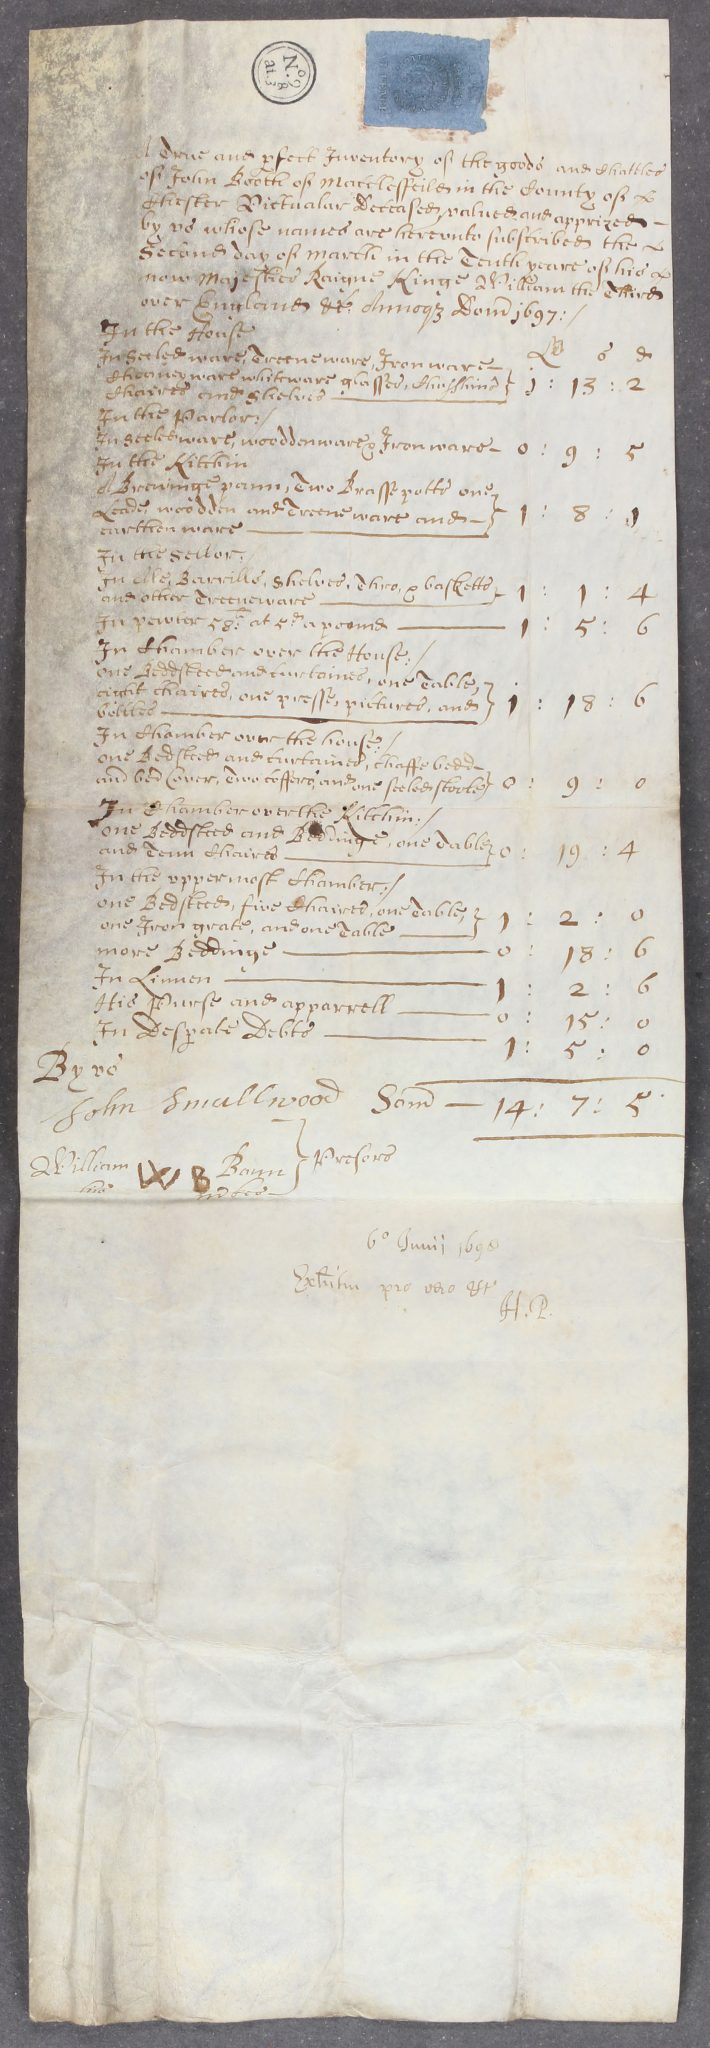 A True and pfect Inventory of the goods and Chattles
of John Booth of Macclesfeild in the County of
Chester Victualar Deceased, valued and apprized
by vs whose names are herevnto subscribed the
Second day of March in the Tenth yeare of his
now Majesties Raigne Kinge William the Third
over England &c Annoq Dom 1697:/
In the House
s d
In Seeled ware, Treene ware, Iron ware
Cheaney ware whiteware glasses, Chusshins 1 : 13 : 2
Chaires and Shelves
In the Parlor:/
In Seeledware, woodden ware & Iron ware 0 : 9 : 5
In the Kitchin
A Brewinge pann, Two Brasse potts one
Leade, woodden and Treene ware and 1 : 8 : 1
earthen ware
In the Sellor:/
In Ale, Barrills, Shelves, Thro, & basketts
and other Treeneware 1 : 1 : 4
In pewter 58: at 5d a pound 1 : 5 : 6
In Chamber over the House:/
one Beddsteed and curtaines, one Table,
eight chaires, one presse, pictures, and 1 : 18 : 6
bottles
In Chamber over the house:/
one Bedsteed and curtaines, chaffe bedd
and bed Cover, Two coffers, and one seeled stoole 0 : 9 : 0
In Chamber over the Kitchin:/
one Beddsteed and Beddinge, one Table
and Tenn Chaires 0 : 19 : 4
In the vppermost Chamber:/
one Bedsteed, five Chaires, one Table, 1 : 2 : 0
one Iron grate, and one Table
more Beddinge 0 : 18 : 6
In Linnen 1 : 2 : 6
His Purse and apparrell 0 : 15 : 0
In Despate Debts 1 : 5 : 0
By vs
John Smallwood Som 14 : 7 : 5
William W B Bann Prisors
his
6o Junij 1698
pro vero
H. P.